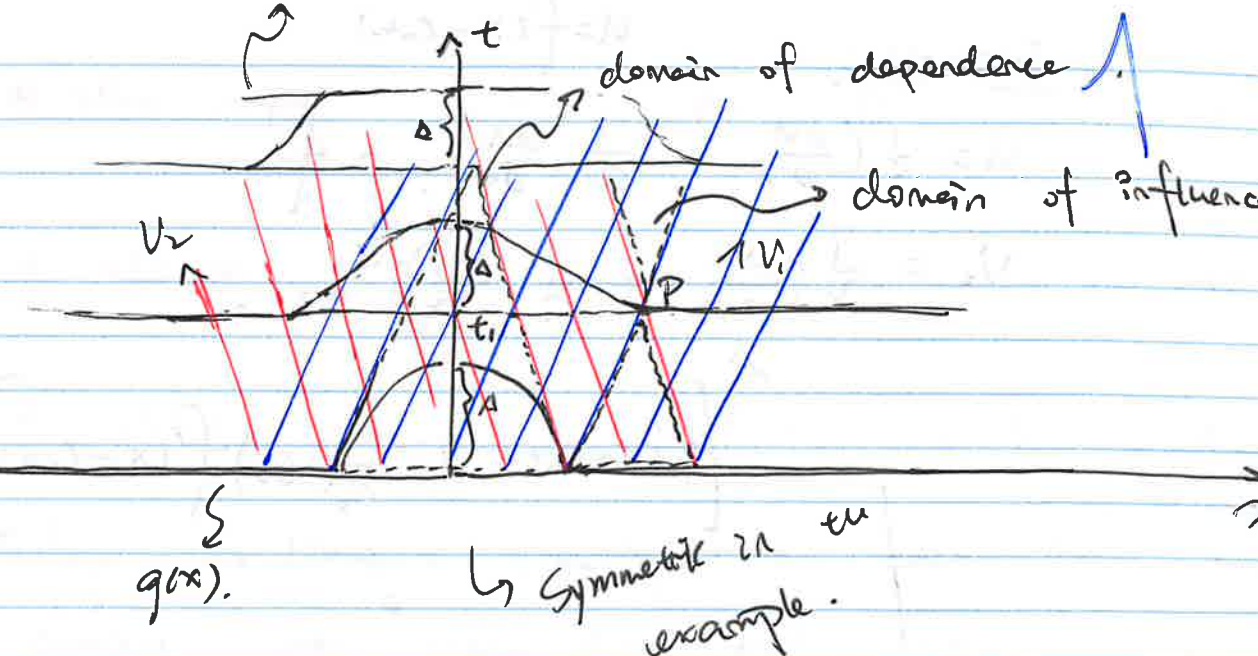 t
domain of dependence.
Δ
domain of influenc
V₂
V₁
Δ
P
t₁
Δ
g(x).
Symmetric in the
example.